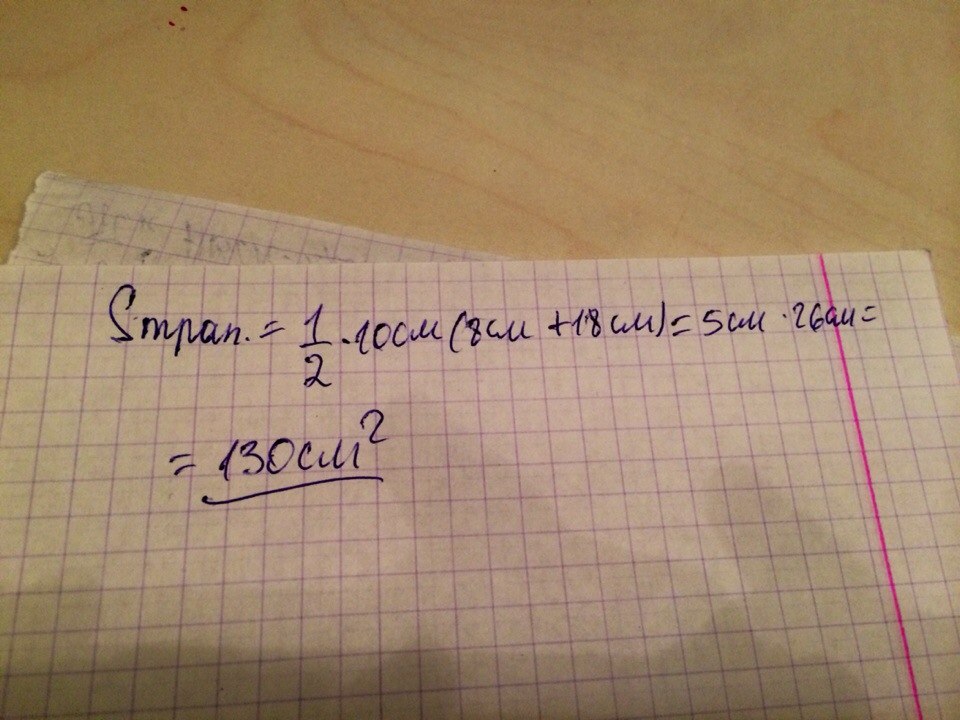 Sтрап. = 1/2 · 10см (8см + 18см) = 5см · 26см =
= 130см²